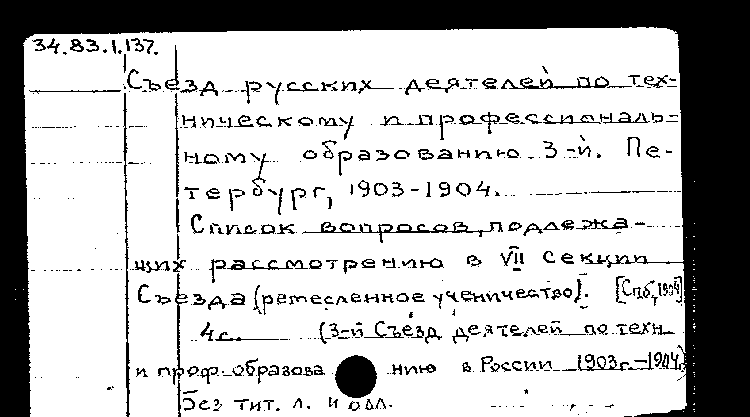 34.83.1.137.
Съезд русских деятелей по тех-
ническому и профессиональ-
ному образованию. 3-й. Пе-
тербург, 1903-1904.
Список вопросов, подлежа-
щих рассмотрению в VII секции
Съезда (ремесленное ученичество). [Спб, 1904]
4с. (3-й Съезд деятелей по техн.
и проф. образованию в России 1903г.-1904.)
Без тит. л. и обл.